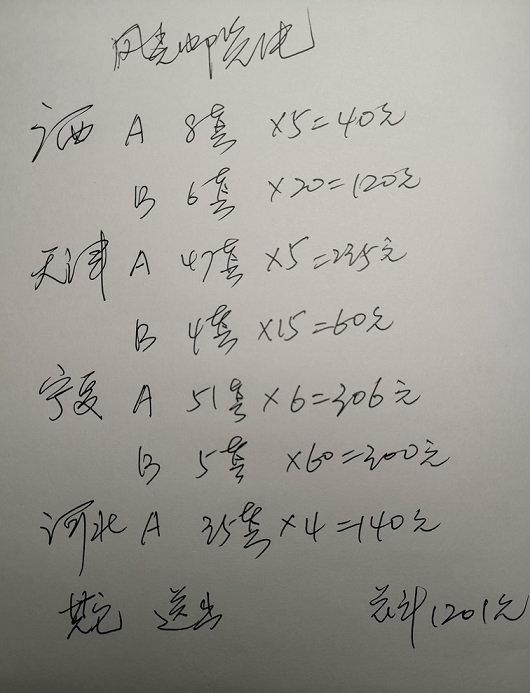 风光邮资化
广西 A 8套 ×5=40元
B 6套 ×20=120元
天津 A 47套 ×5=235元
B 4套 ×15=60元
宁夏 A 51套 ×6=306元
B 5套 ×60=300元
河北 A 35套 ×4=140元
其它 送出 总计1201元